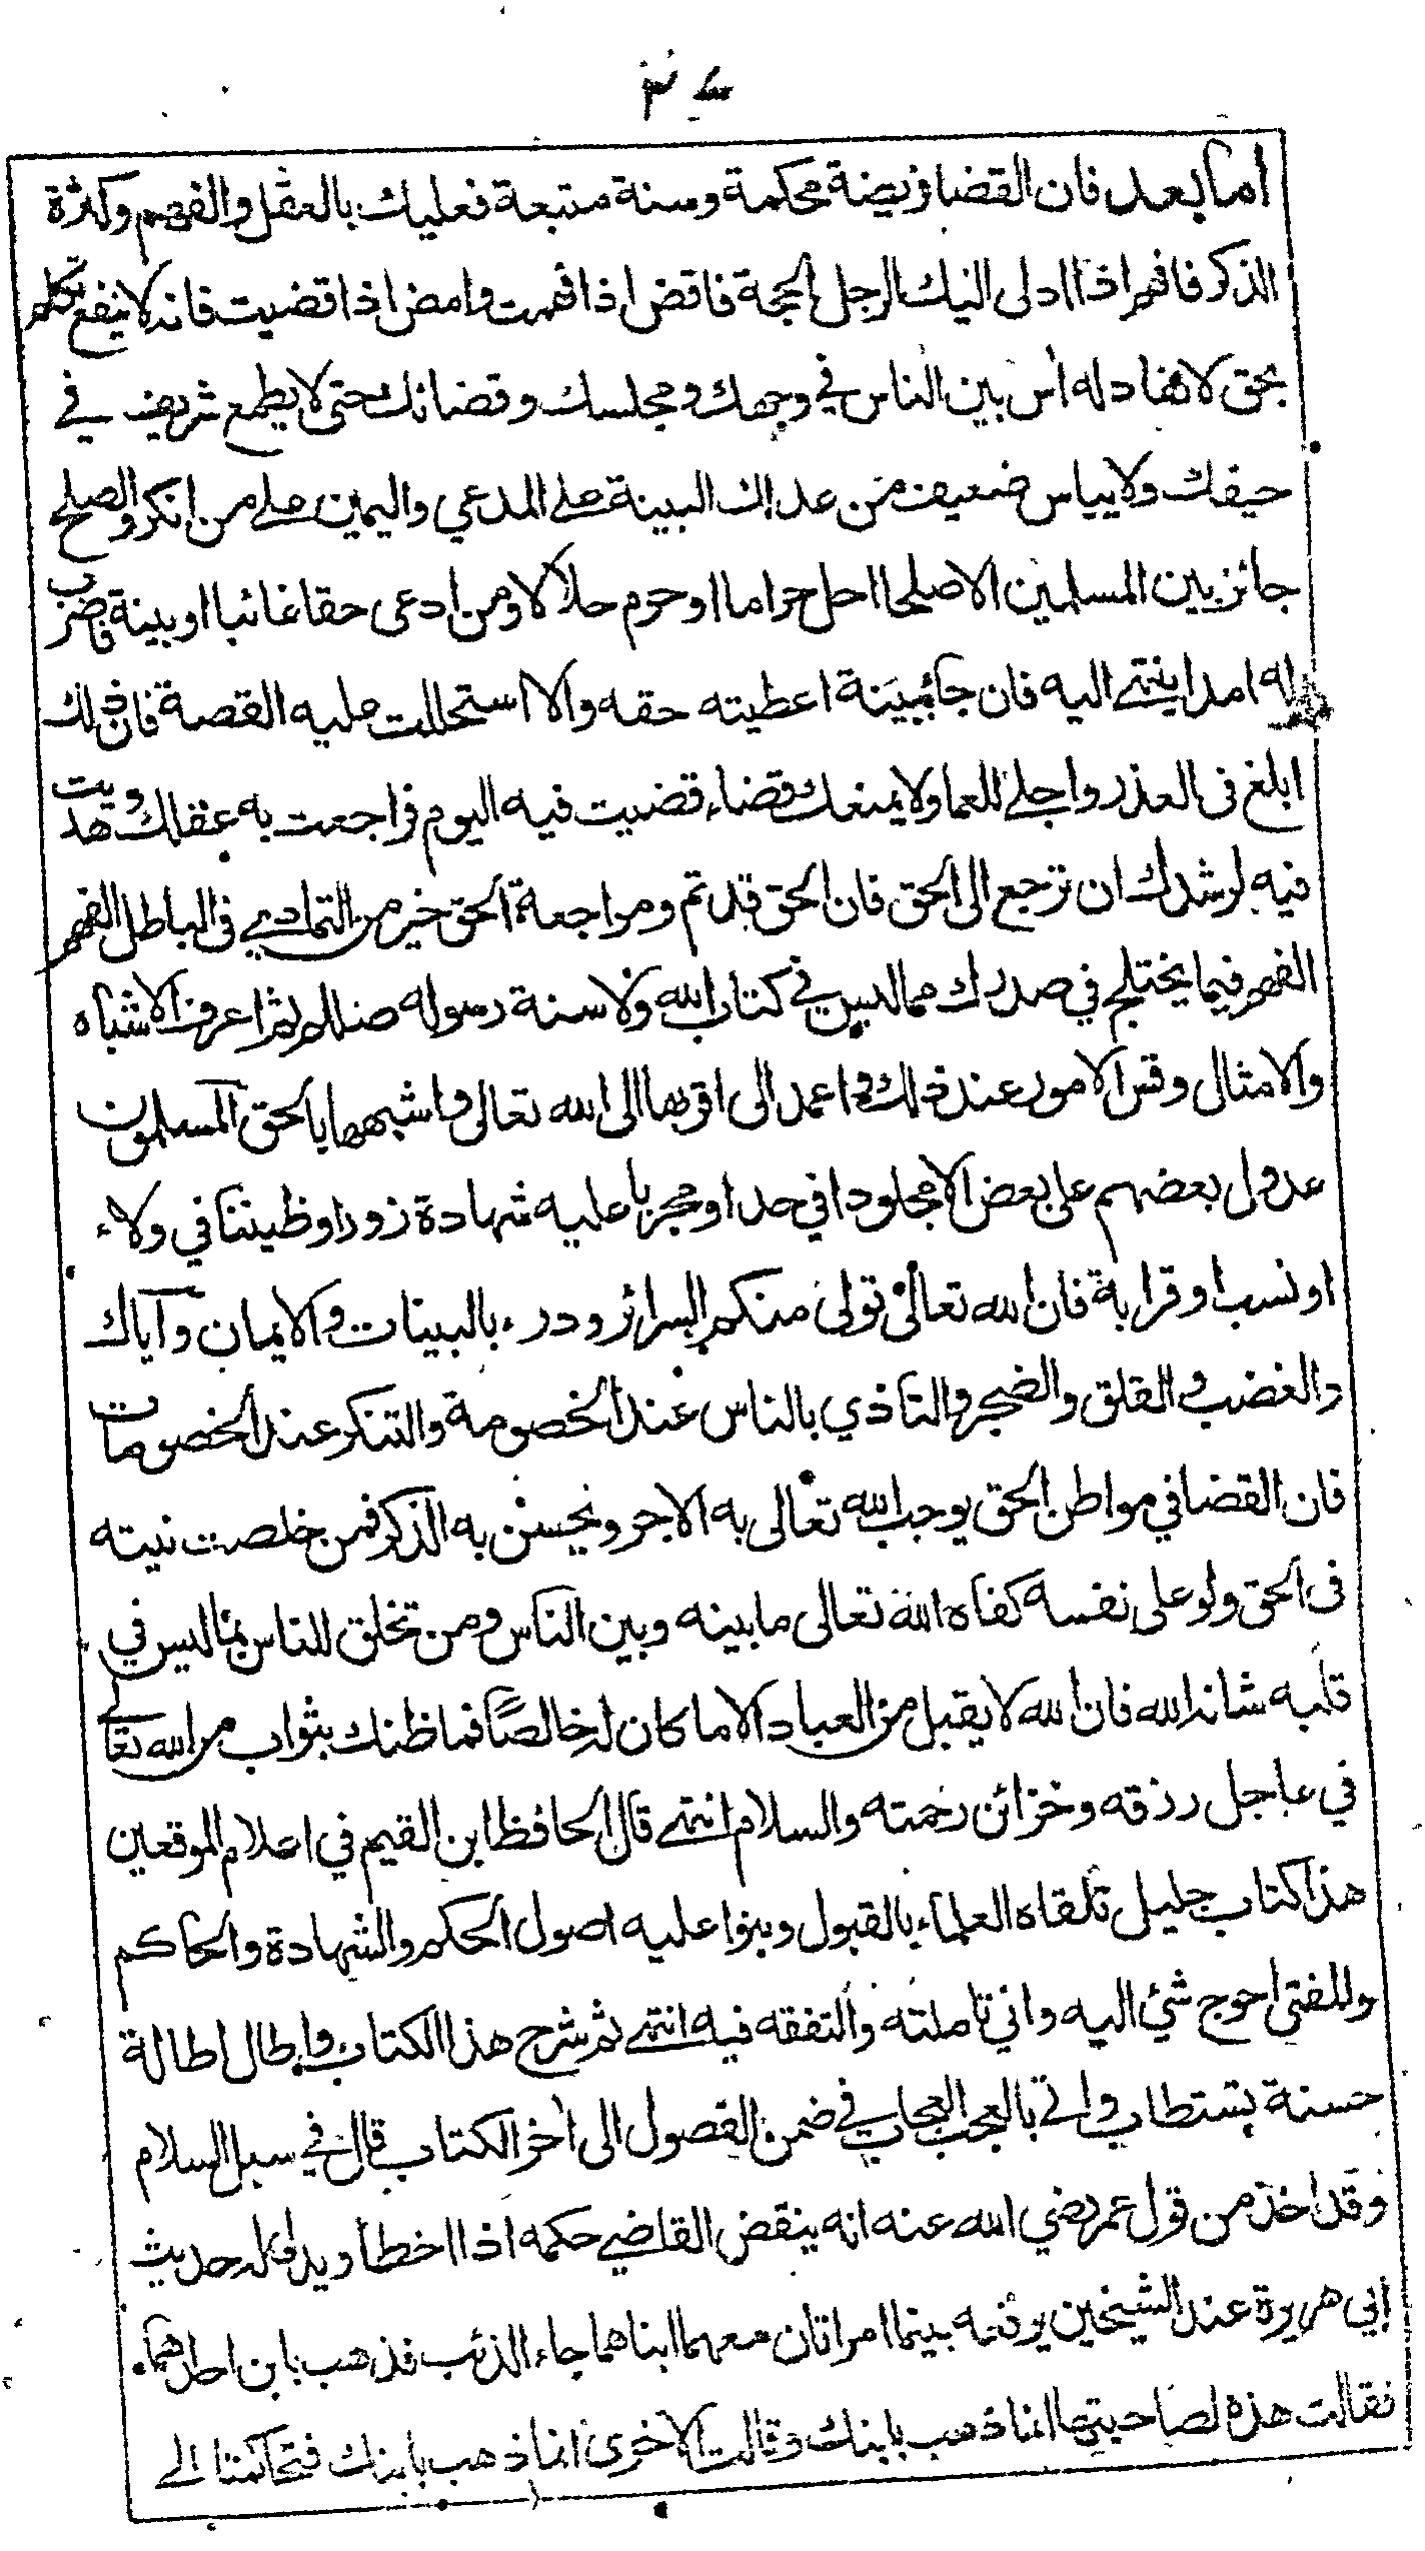 ٣٤
اما بعد فان القضا فريضة محكمة وسنة متبعة فعليك بالعقل والفهم وكثرة
الذكر فافهم اذا ادلى اليك الرجل الحجة فاقض اذا فهمت وامض اذا قضيت فانه لا ينفع تكلم
بحق لا نفاد له اس بين الناس في وجهك ومجلسك وقضائك حتى لا يطمع شريف في
حيفك ولا يياس ضعيف من عدلك البينة على المدعي واليمين على من انكر والصلح
جائز بين المسلمين الا صلحا احل حراما او حرم حلالا ومن ادعى حقا غائبا او بينة فاضرب
له امدا ينتهي اليه فان جا ببينة اعطيته حقه والا استحللت عليه القصة فان ذلك
ابلغ في العذر واجلى للعما ولا يمنعك قضاء قضيت فيه اليوم فراجعت به عقلك وهديت
فيه لرشدك ان ترجع الى الحق فان الحق قد تم ومراجعة الحق خير من التمادي في الباطل الفهم
الفهم فيما يختلج في صدرك مما ليس في كتاب الله ولا سنة رسوله صللم ثم اعرف الاشباه
والامثال وقس الامور عند ذلك واعمد الى اقربها الى الله تعالى واشبهها بالحق المسلمون
عدول بعضهم على بعض الا مجلودا في حد او مجربا عليه شهادة زور او ظنينا في ولاء
او نسب او قرابة فان الله تعالى تولى منكم السرائر ودرء بالبينات والايمان واياك
والغضب والقلق والضجر والتاذي بالناس عند الخصومة والتنكر عند الخصومات
فان القضا في مواطن الحق يوجب الله تعالى به الاجر ويحسن به الذكر فمن خلصت نيته
في الحق ولو على نفسه كفاه الله تعالى ما بينه وبين الناس ومن تخلق للناس بما ليس في
قلبه شانه الله فان الله لا يقبل من العباد الا ما كان له خالصا فما ظنك بثواب من الله تعالى
في عاجل رزقه وخزائن رحمته والسلام انتهى قال الحافظ ابن القيم في اعلام الموقعين
هذا كتاب جليل تلقاه العلماء بالقبول وبنوا عليه اصول الحكم والشهادة والحاكم
وللفتي احوج شئ اليه واني تاملته والتفقه فيه انتهى ثم شرح هذا الكتاب واطال اطالة
حسنة تستطاب واتى بالعجب العجاب في ضمن الفصول الى اخر الكتاب قال في سبل السلام
وقد اخذ من قول عمر رضي الله عنه انه ينقض القاضي حكمه اذا اخطأ ويدل له حديث
ابي هريرة عند الشيخين يرفعه بينما امراتان معهما ابناهما جاء الذئب فذهب بابن احداهما
فقالت هذه لصاحبتها انما ذهب بابنك وقالت الاخرى انما ذهب بابنك فتحاكمتا الى